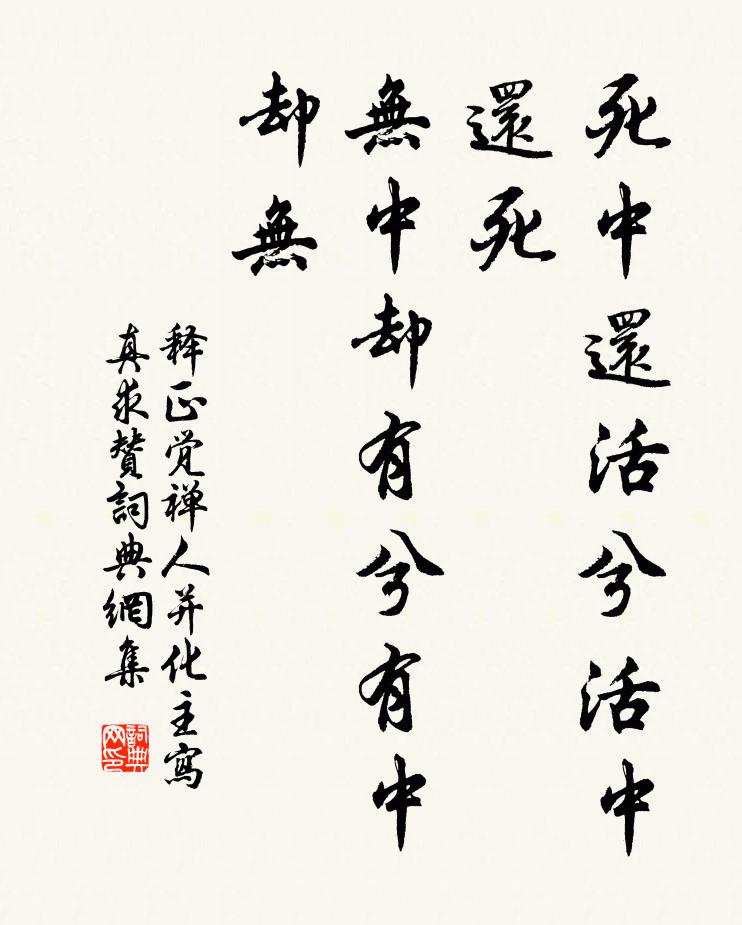 死中還活兮活中
還死
無中却有兮有中
却無
释正觉禅人并化主寫
真求赞詞典網集
詞典
网印